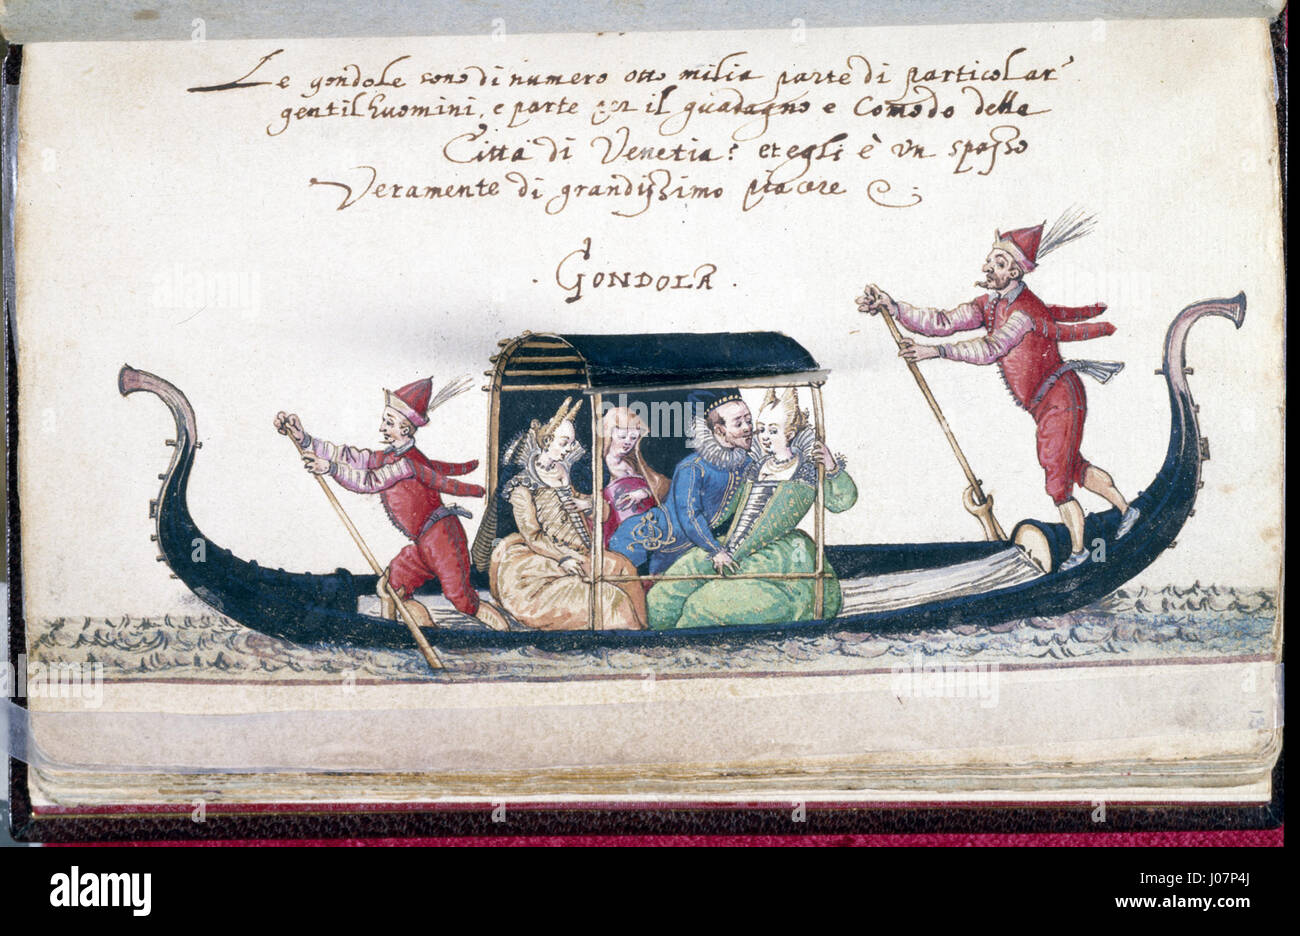 Le gondole sono di numero otto milia parte di particolar
gentilhuomini, e parte per il guadagno e comodo della
Città di Venetia: et egli è un spasso
Veramente di grandissimo piacere
. GONDOLA .
alamy
Image ID: J07P4J
www.alamy.com